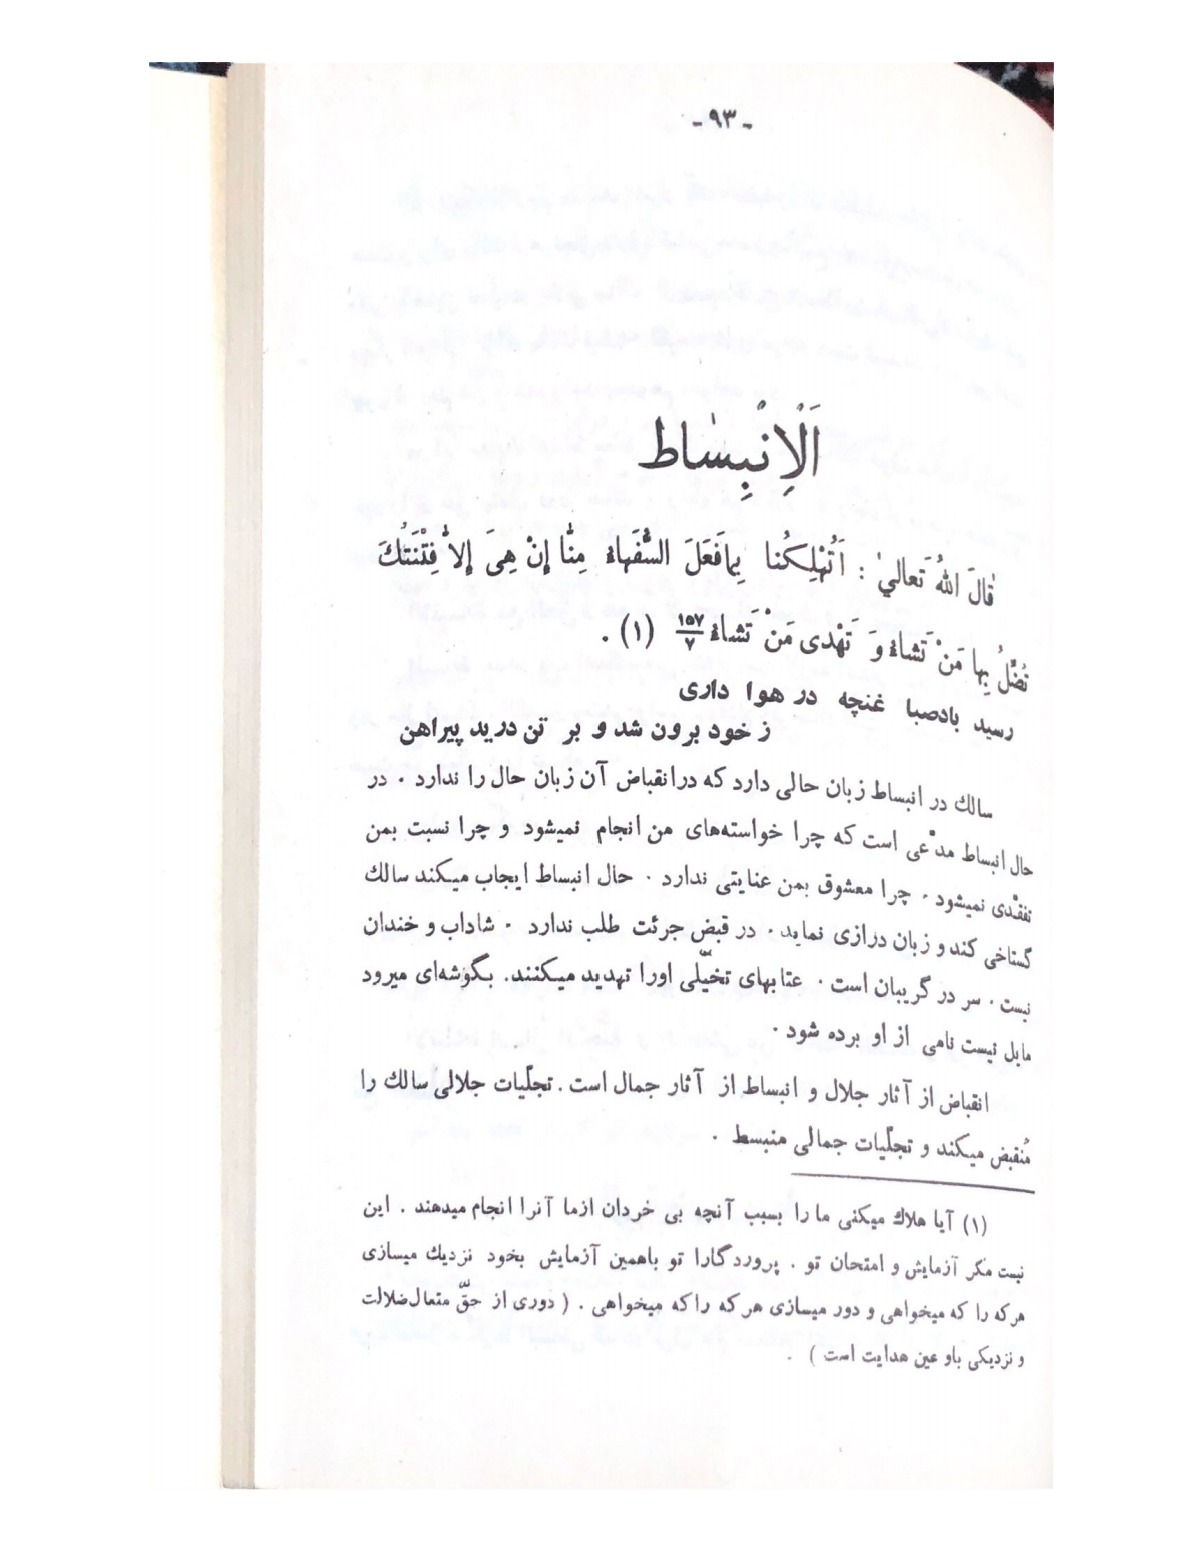 - ۹۳ -
اَلْاِنْبِسٰاط
قٰالَ اللهُ تَعالیٰ : اَتُهْلِكُنا بِمافَعَلَ السُّفَهاءُ مِنّا إنْ هِیَ إلاّ فِتْنَتُكَ
تُضِّلُ بِها مَنْ تَشاءُ وَ تَهْدی مَنْ تَشاءُ ۱۵۷/۷ (۱) .
رسید بادصبا غنچه در هوا داری
ز خود برون شد و بر تن درید پیراهن
سالك در انبساط زبان حالی دارد که درانقباض آن زبان حال را ندارد . در
حال انبساط مدّعی است که چرا خواسته‌های من انجام نمیشود و چرا نسبت بمن
تفقّدی نمیشود . چرا معشوق بمن عنایتی ندارد . حال انبساط ایجاب میکند سالك
گستاخی کند و زبان درازی نماید . در قبض جرئت طلب ندارد . شاداب و خندان
نیست . سر در گریبان است . عتابهای تخیّلی اورا تهدید میکنند. بگوشه‌ای میرود
مایل نیست نامی از او برده شود .
انقباض از آثار جلال و انبساط از آثار جمال است . تجلّیات جلالی سالك را
مُنقبض میکند و تجلّیات جمالی منبسط .
(۱) آیا هلاك میکنی ما را بسبب آنچه بی خردان ازما آنرا انجام میدهند . این
نیست مگر آزمایش و امتحان تو . پروردگارا تو باهمین آزمایش بخود نزدیك میسازی
هرکه را که میخواهی و دور میسازی هرکه راکه میخواهی . ( دوری از حقّ متعال‌ضلالت
و نزدیکی باو عین هدایت است ) .